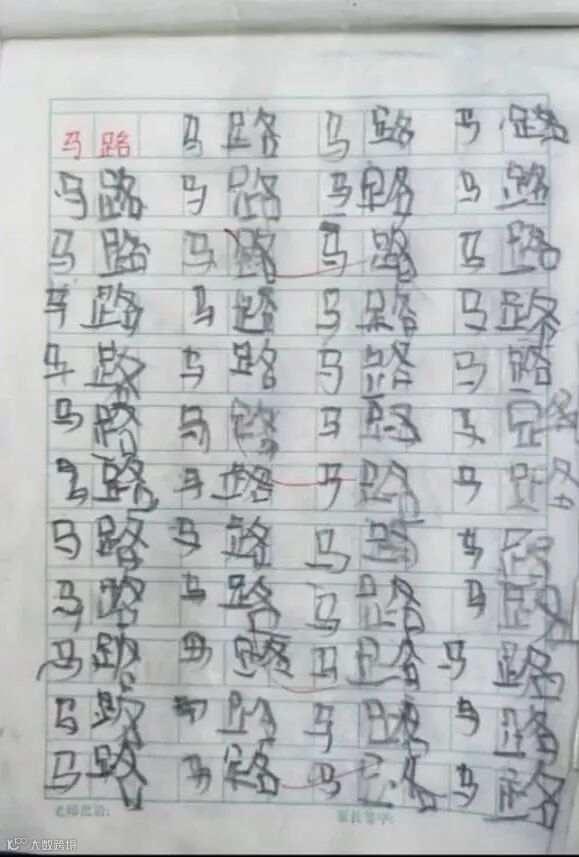 马 路 马 路 马 路 马 路
马 路 马 路 马 路 马 路
马 路 马 路 马 路 马 路
马 路 马 路 马 路 马 路
马 路 马 路 马 路 马 路
马 路 马 路 马 路 马 路
马 路 马 路 马 路 马 路
马 路 马 路 马 路 马 路
马 路 马 路 马 路 马 路
马 路 马 路 马 路 马 路
马 路 马 路 马 路 马 路
马 路 马 路 马 路 马 路
老师批语: 家长签字:
大数跨境